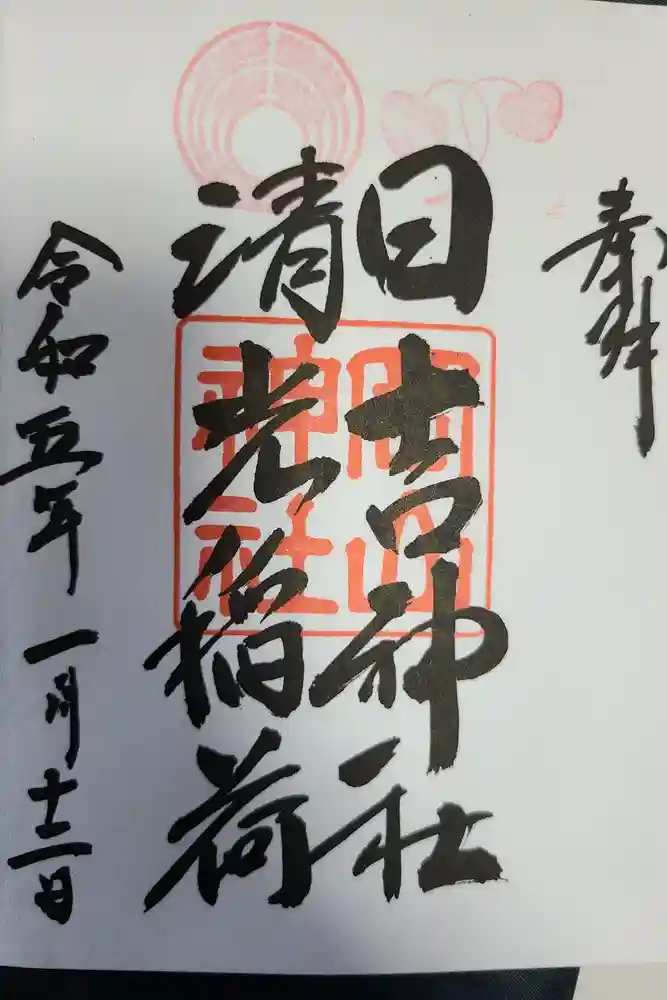 奉拝
日吉神社
清光稲荷
岡山
神社
令和五年一月十二日